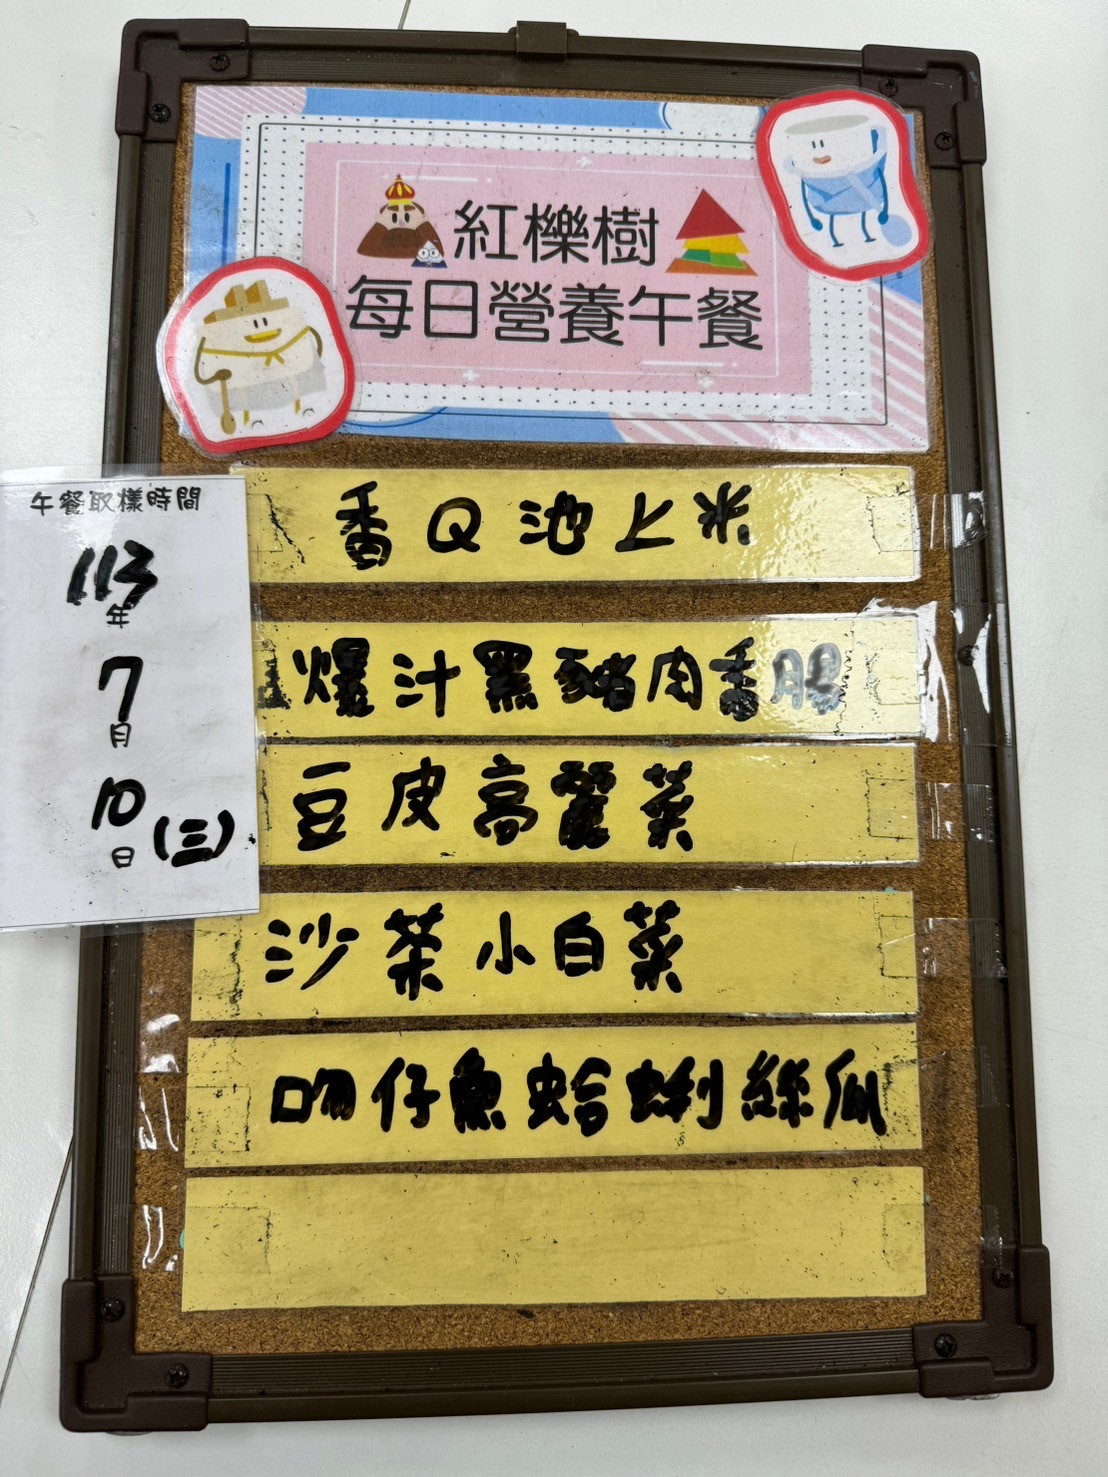 紅櫟樹
每日營養午餐
午餐取樣時間
113
年
7
月
10
日 (三)
香Q池上米
爆汁黑豬肉香腸
豆皮高麗菜
沙茶小白菜
吻仔魚蛤蜊絲瓜